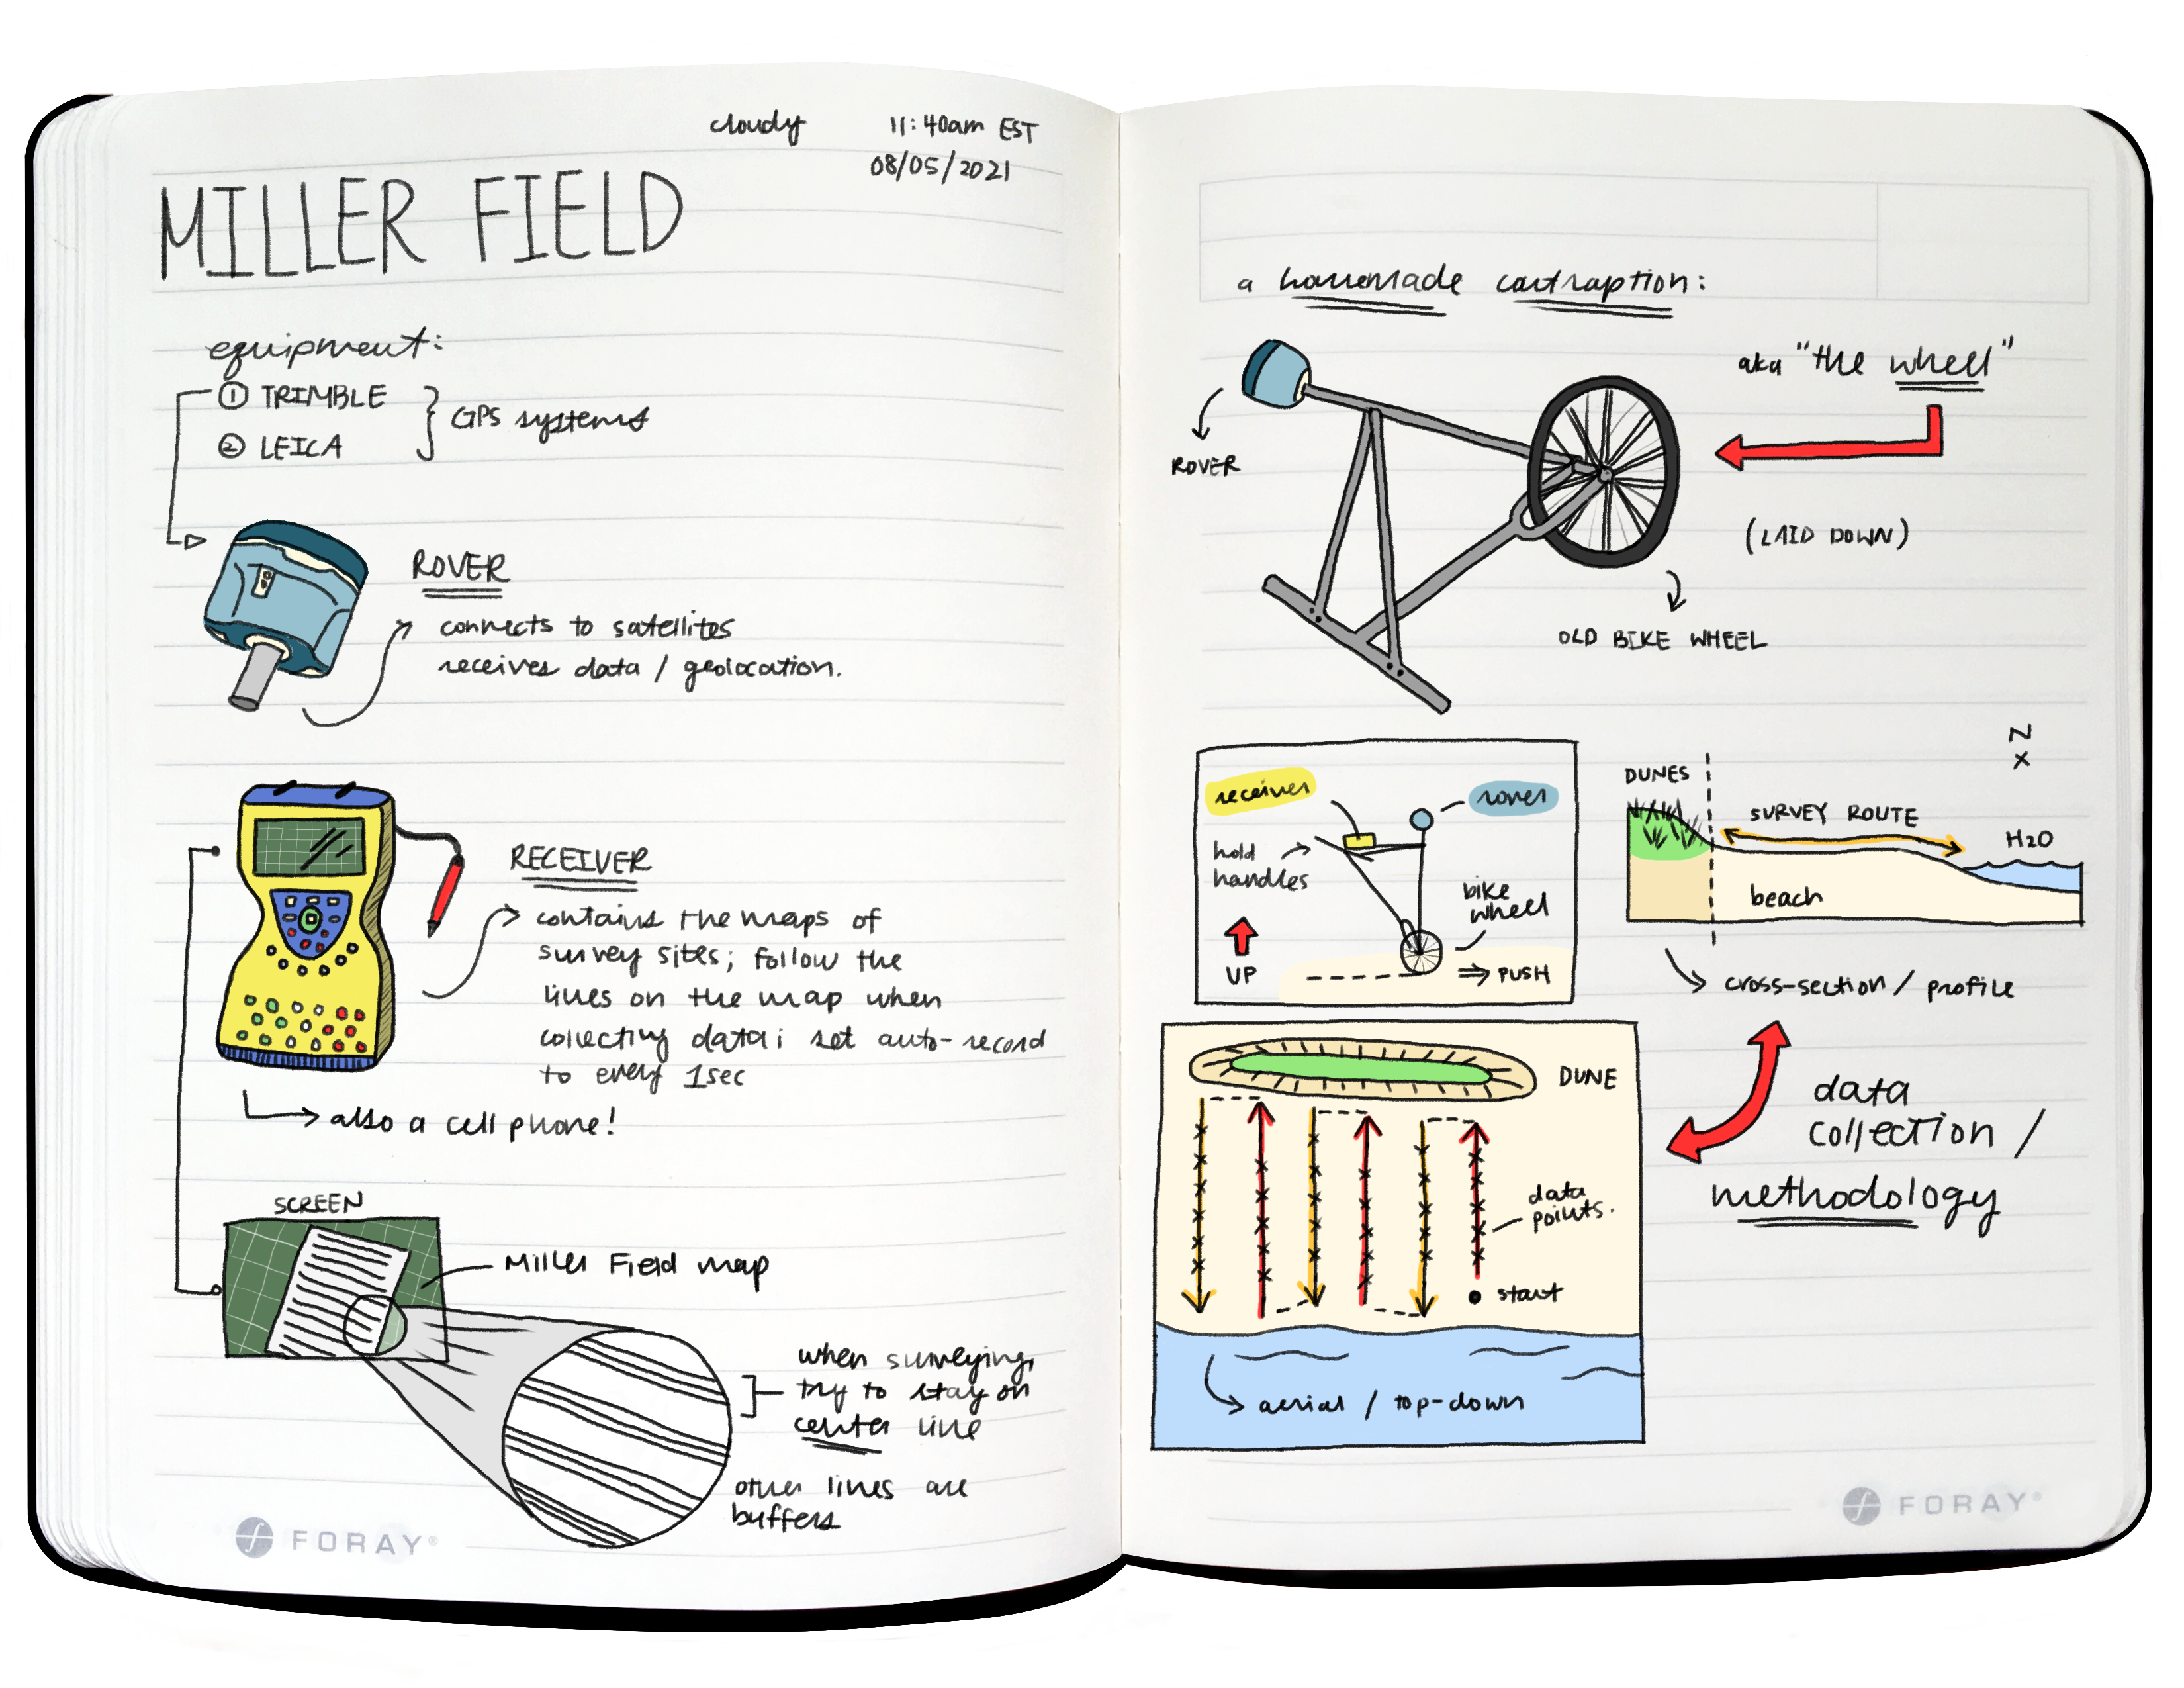 cloudy 11:40am EST
08/05/2021
MILLER FIELD
equipment:
① TRIMBLE
② LEICA
GPS systems
ROVER
connects to satellites
receives data / geolocation.
RECEIVER
contains the maps of
survey sites; follow the
lines on the map when
collecting data; set auto-record
to every 1sec
also a cell phone!
SCREEN
Miller Field map
when surveying,
try to stay on
center line
other lines are
buffers
FORAY®
a homemade contraption:
aka "the wheel"
ROVER
(LAID DOWN)
OLD BIKE WHEEL
receiver
rover
hold
handles
bike
wheel
UP
PUSH
N
X
DUNES
SURVEY ROUTE
H2O
beach
cross-section / profile
DUNE
data
points.
start
aerial / top-down
data
collection /
methodology
FORAY®